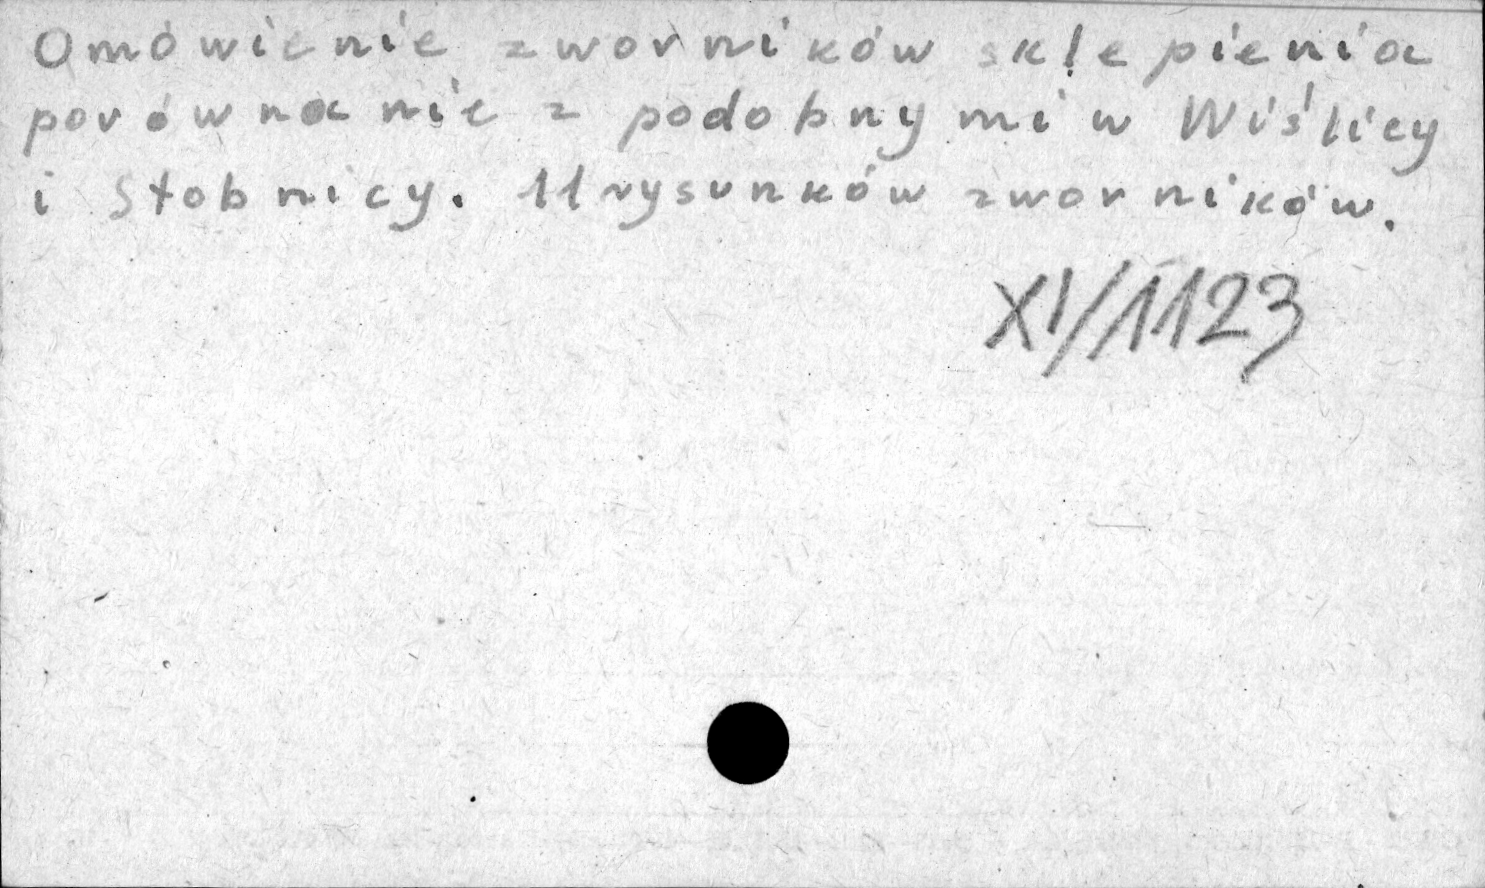 Omówienie zworników sklepienia
porównanie z podobnymi w Wiślicy
i Stobnicy. 11 rysunków zworników.
XI/1123